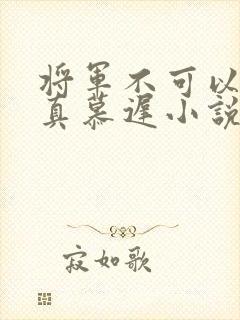 将军不可以
真慕遲小説
寂如歌